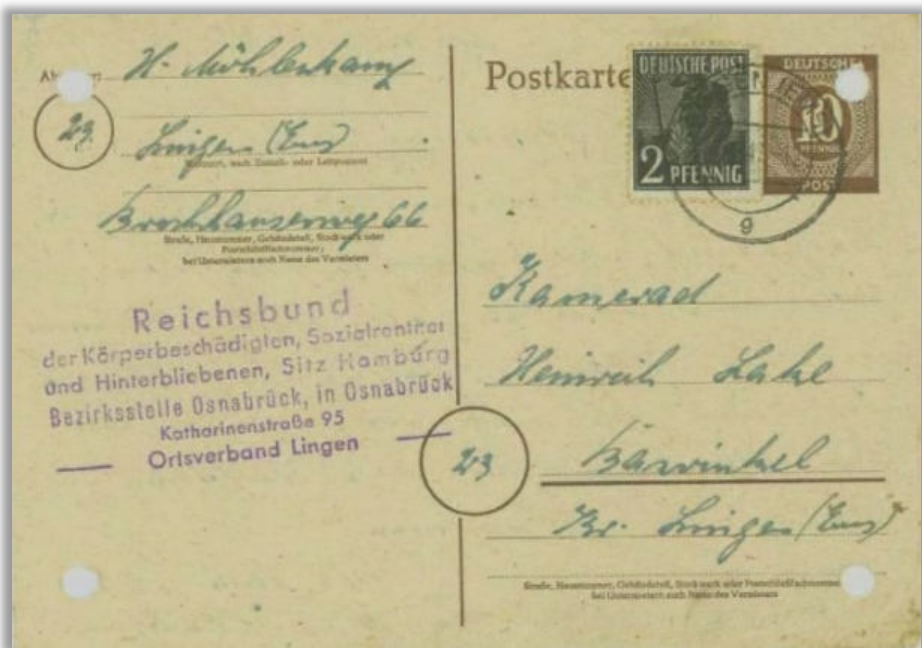 H. Möhlenkamp
23
Lingen (Ems)
Wohnort, auch Zustell- oder Leitpostamt
66
Straße, Hausnummer, Gebäudeteil, Stockwerk oder
Postschließfachnummer;
bei Untermietern auch Name des Vermieters
Reichsbund
der Körperbeschädigten, Sozialrentner
und Hinterbliebenen, Sitz Hamburg
Bezirksstelle Osnabrück, in Osnabrück
Katharinenstraße 95
Ortsverband Lingen
Postkarte
DEUTSCHE POST
2 PFENNIG
DEUTSCHE
10
PFENNIG
POST
g
Kamerad
Heinrich
23
Bawinkel
Kr. Lingen (Ems)
Straße, Hausnummer, Gebäudeteil, Stockwerk oder Postschließfachnummer
bei Untermietern auch Name des Vermieters